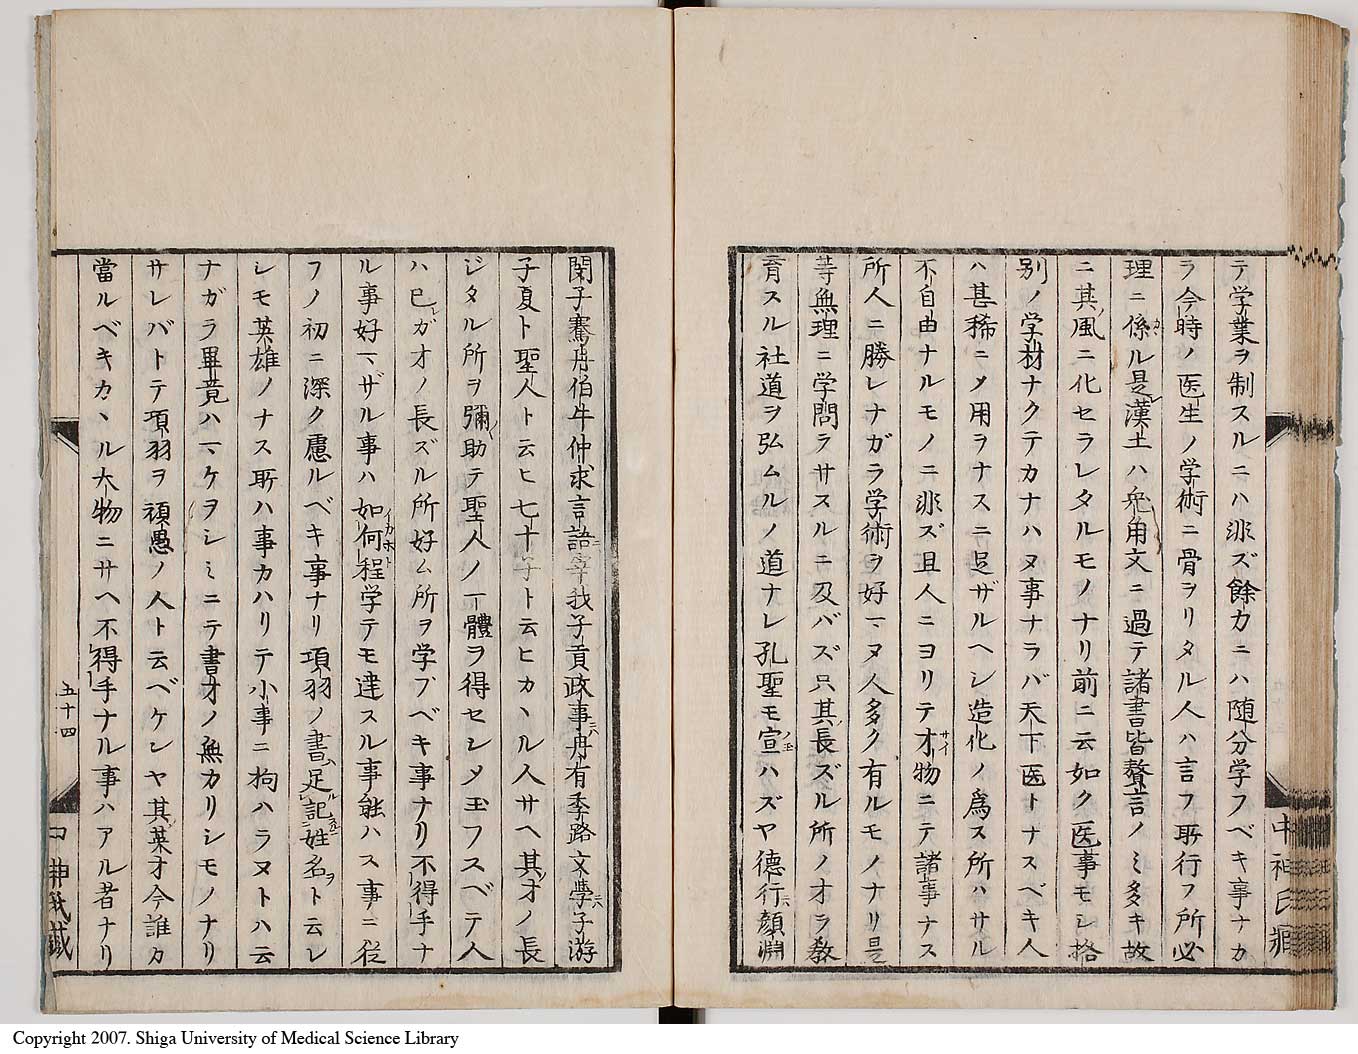 テ学業ヲ制スルニハ非ズ餘力ニハ随分学フベキ事ナカ
ラ今時ノ医生ノ学術ニ骨ヲリタル人ハ言フ所行フ所必
理ニ係ル是漢土ハ兎角文ニ過テ諸書皆贅言ノミ多キ故
ニ其風ニ化セラレタルモノナリ前ニ云如ク医事モシ格
別ノ学材ナクテカナハヌ事ナラバ天下医トナスベキ人
ハ甚稀ニメ用ヲナスニ足ザルヘシ造化ノ為ス所ハサル
不自由ナルモノニ非ズ且人ニヨリテ才物ニテ諸事ナス
所人ニ勝レナガラ学術ヲ好マヌ人多ク有ルモノナリ是
等無理ニ学問ラサスルニ及バズ只其長ズル所ノオラ教
育スル社道ヲ弘ムルノ道ナレ孔聖モ宣ハズヤ德行顔淵
中神氏蔵
閔子騫冉伯牛仲求言語宰我子貢政事冉有季路文學子游
子夏ト聖人ト云ヒ七十子ト云ヒカヽル人サヘ其才ノ長
ジタル所ヲ彌助テ聖人ノ一體ヲ得セシメ玉フスベテ人
ハ已ガオノ長ズル所好ム所ヲ学ブベキ事ナリ不得手ナ
ル事好マザル事ハ如何程学テモ達スル事能ハス事ニ從
フノ初ニ深ク慮ルベキ事ナリ項羽ノ書足記姓名ト云レ
シモ英雄ノナス所ハ事カハリテ小事ニ拘ハラヌトハ云
ナガラ畢竟ハマケヲシミニテ書才ノ無カリシモノナリ
サレバトテ項羽ヲ頑愚ノ人ト云ベケンヤ其英才今誰カ
當ルベキカヽル大物ニサヘ不得手ナル事ハアル者ナリ
五十四
中神氏蔵
Copyright 2007. Shiga University of Medical Science Library